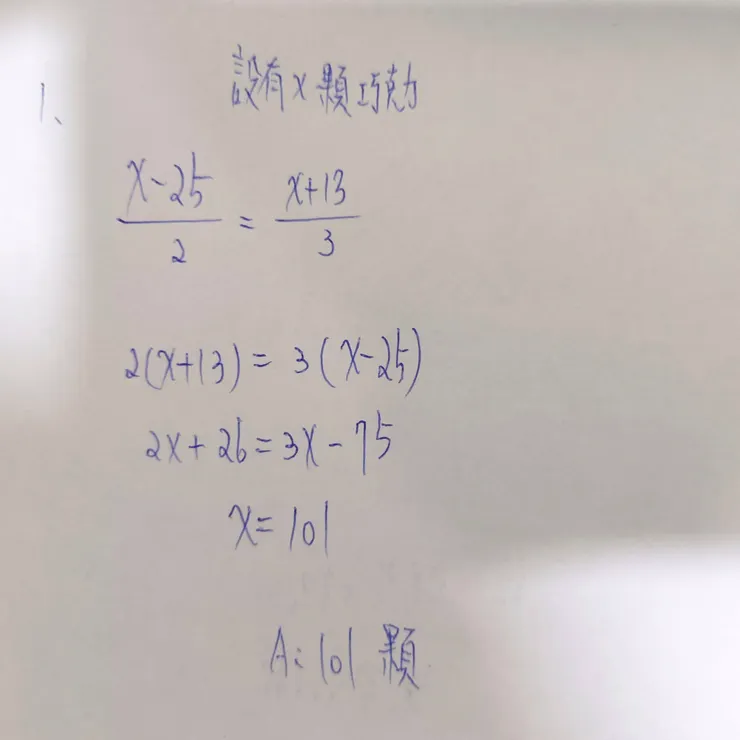 1、 設有x顆巧克力
x-25/2 = x+13/3
2(x+13) = 3(x-25)
2x+26=3x-75
x=101
A:101 顆